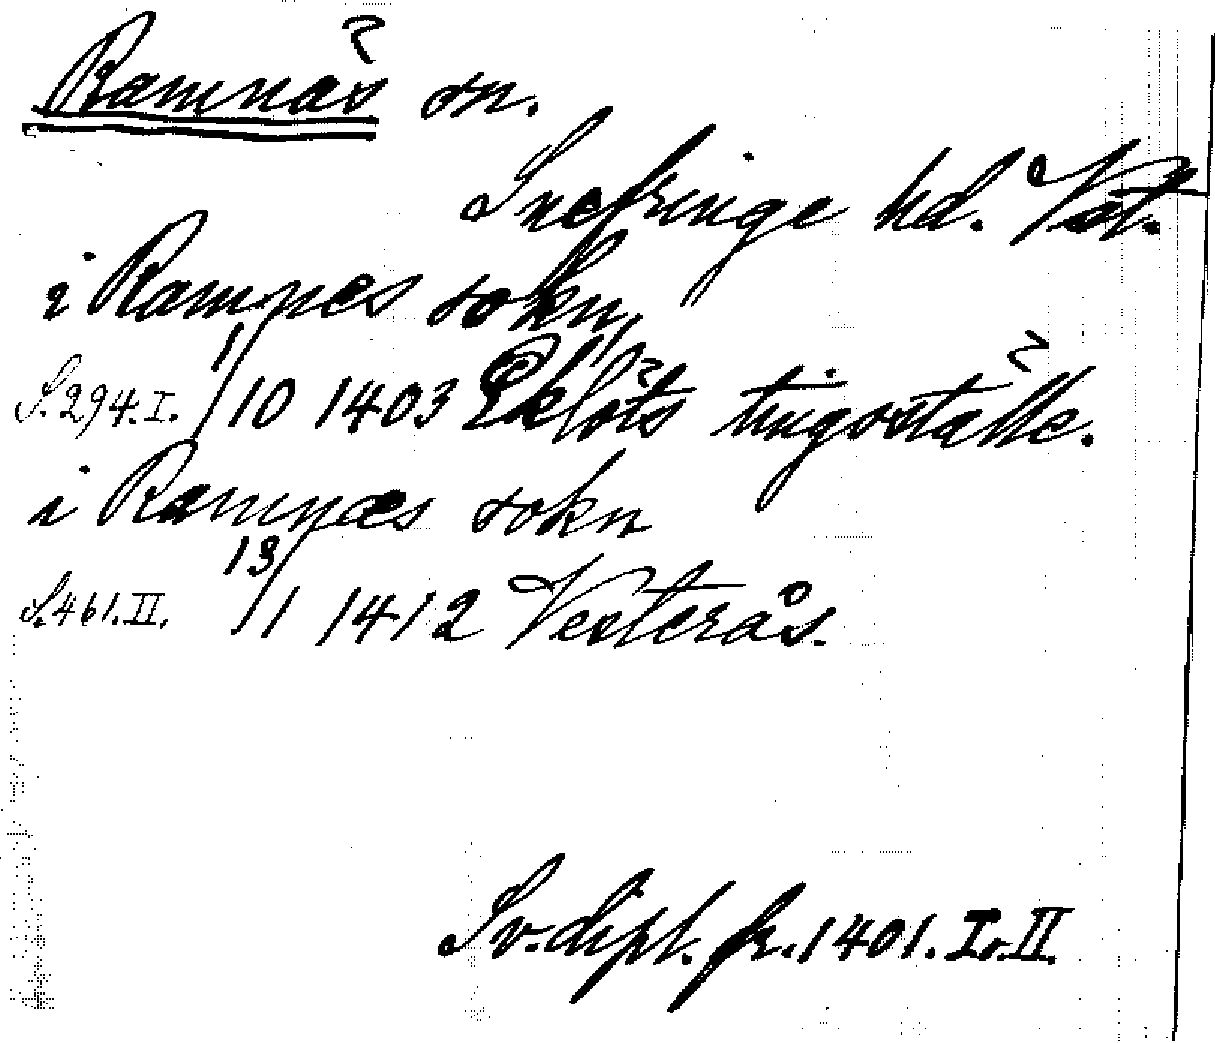 Ramnäs sn.
Snefringe hd. Vst.
i Ramnes sokn
S. 294. I. 1/10 1403 Eklöts tingställe.
i Ramnæs sokn
S. 461. II. 13/1 1412 Vesterås.
Sv. dipl. fr. 1401. I. II.